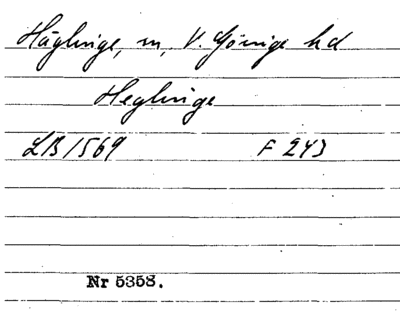 Häglinge, sn, V. Göinge hd
Heglinge
LB 1569 F 243
Nr 5358.